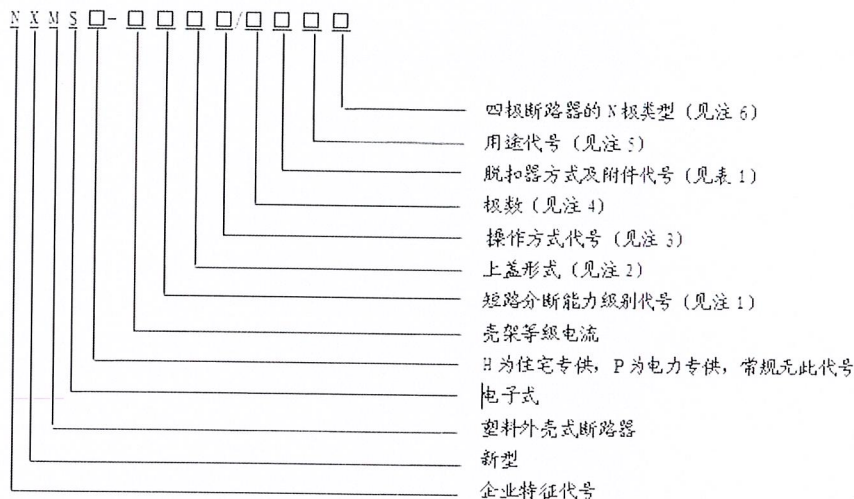 NXMS□-□□□□/□□□□
四极断路器的N极类型（见注6）
用途代号（见注5）
脱扣器方式及附件代号（见表1）
极数（见注4）
操作方式代号（见注3）
上盖形式（见注2）
短路分断能力级别代号（见注1）
壳架等级电流
H为住宅专供，P为电力专供，常规无此代号
电子式
塑料外壳式断路器
新型
企业特征代号